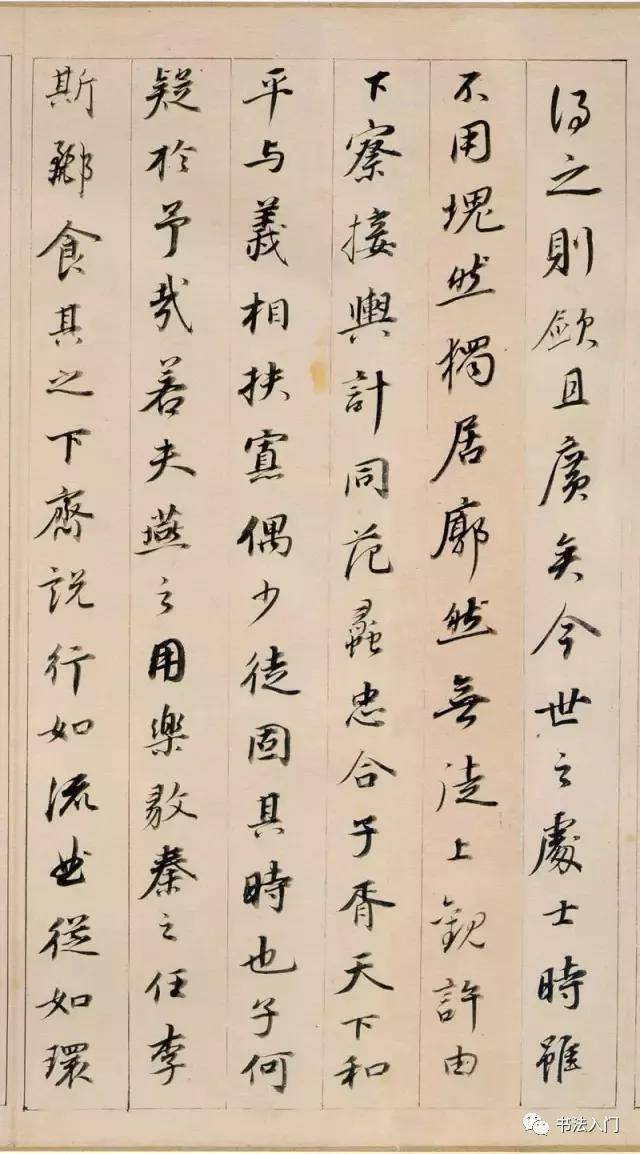 得之則歛且廣矣今世之處士時雖
不用塊然獨居廓然無徒上觀許由
下察接輿計同范蠡忠合子胥天下和
平与義相扶寡偶少徒固其時也子何
疑於予哉若夫燕之用樂毅秦之任李
斯酈食其之下齊說行如流曲從如環
书法入门